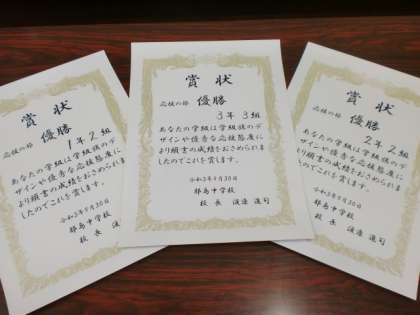 賞状
応援の部 優勝
1年2組
あなたの学級は学級旗のデ
ザインや優秀な応援態度に
より頭書の成績をおさめられま
したのでこれを賞します。
令和3年9月30日
中学校
校長
賞状
応援の部 優勝
3年3組
あなたの学級は学級旗のデ
ザインや優秀な応援態度に
より頭書の成績をおさめられま
したのでこれを賞します。
令和3年9月30日
中学校
校長
賞状
応援の部 優勝
2年2組
あなたの学級は学級旗のデ
ザインや優秀な応援態度に
より頭書の成績をおさめられま
したのでこれを賞します。
令和3年9月30日
中学校
校長